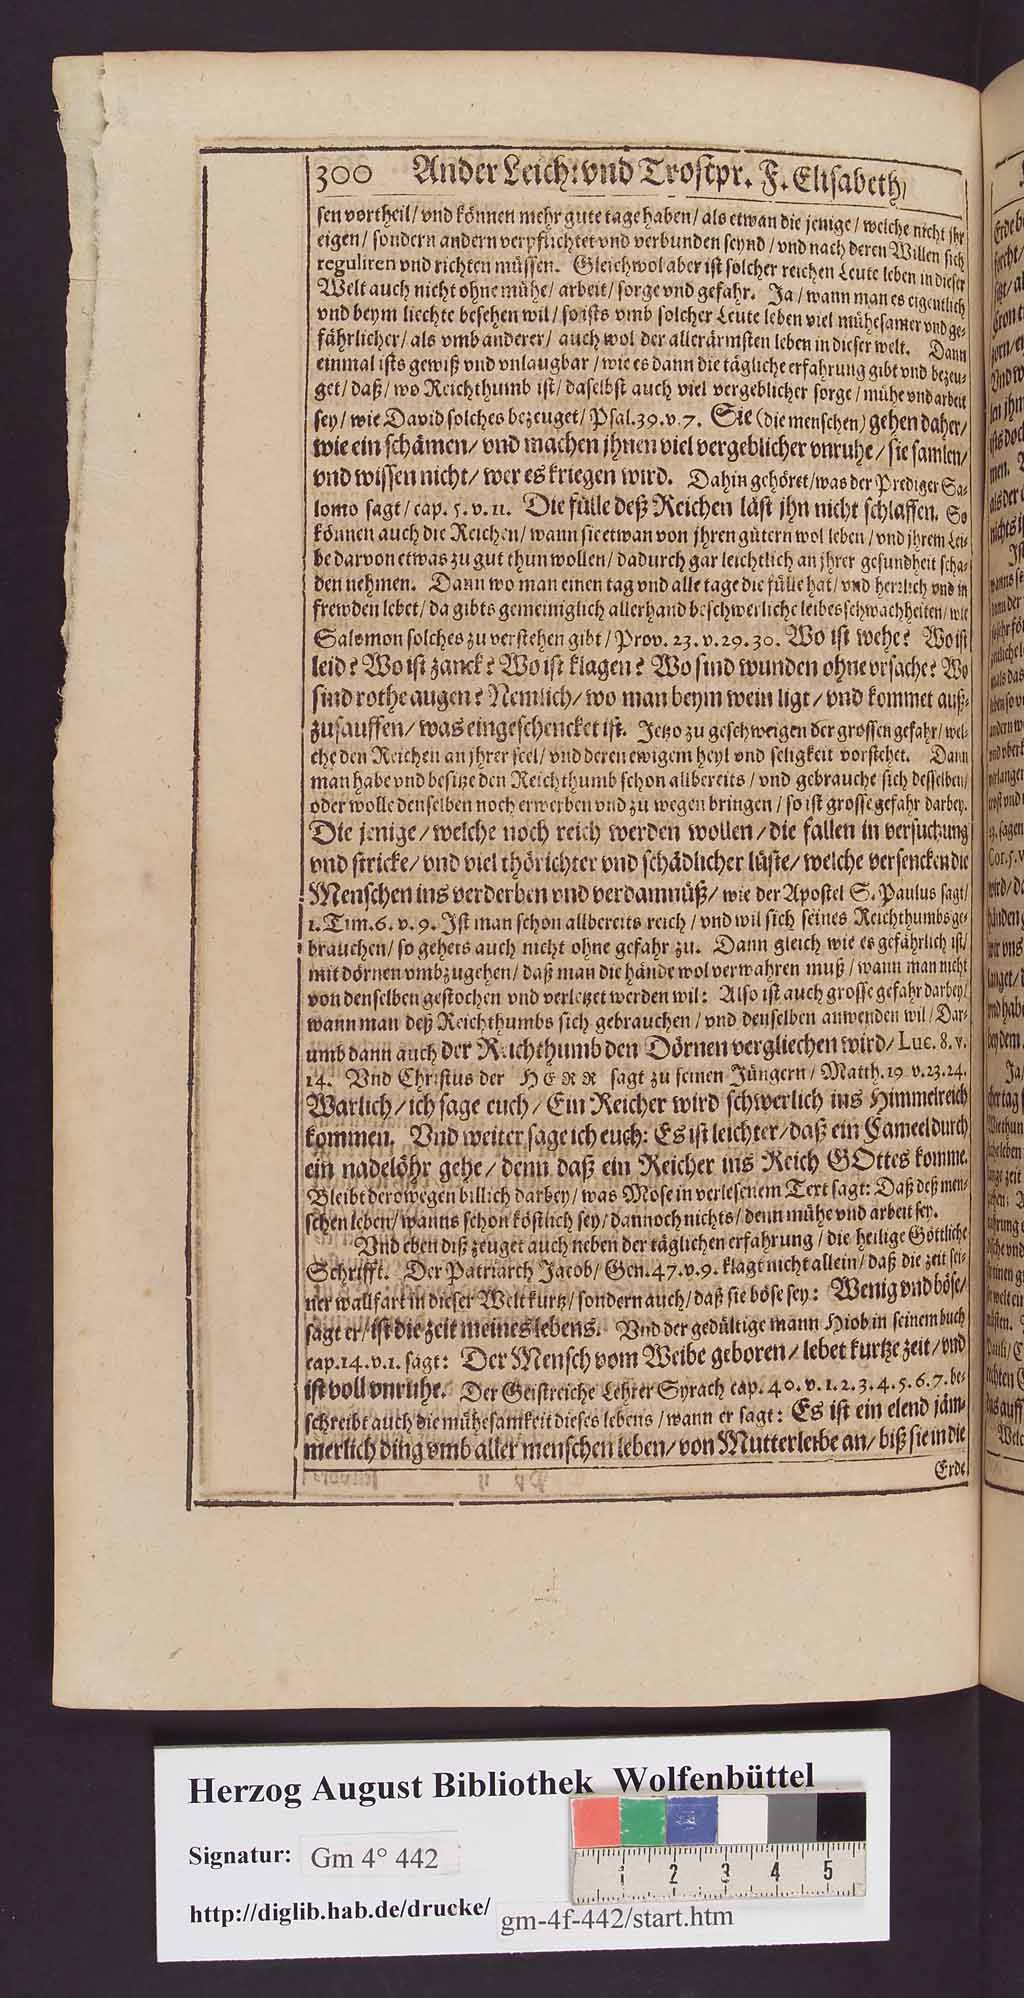 300 Ander Leich: vnd Trostpr. F. Elisabeth/
sen vortheil/ vnd können mehr gute tage haben/ als etwan die jenige/ welche nicht jhr
eigen/ sondern andern verpflichtet vnd verbunden seynd/ vnd nach deren Willen sich
reguliren vnd richten müssen. Gleichwol aber ist solcher reichen Leute leben in dieser
Welt auch nicht ohne mühe/ arbeit/ sorge vnd gefahr. Ja/ wann man es eigentlich
vnd beym liechte besehen wil/ so ists vmb solcher Leute leben viel mühesamer vnd ge-
fährlicher/ als vmb anderer/ auch wol der allerärmsten leben in dieser welt. Dann
einmal ists gewiß vnd vnlaugbar/ wie es dann die tägliche erfahrung gibt vnd bezeu-
get/ daß/ wo Reichthumb ist/ daselbst auch viel vergeblicher sorge/ mühe vnd arbeit
sey/ wie David solches bezeuget/ Psal. 39. v. 7. Sie (die menschen) gehen daher/
wie ein schämen/ vnd machen jhnen viel vergeblicher vnruhe/ sie samlen/
vnd wissen nicht/ wer es kriegen wird. Dahin gehöret/ was der Prediger Sa-
lomo sagt/ cap. 5. v. 11. Die fülle deß Reichen läst jhn nicht schlaffen. So
können auch die Reichen/ wann sie etwan von jhren gütern wol leben/ vnd jhrem Lei-
be darvon etwas zu gut thun wollen/ dadurch gar leichtlich an jhrer gesundheit scha-
den nehmen. Dann wo man einen tag vnd alle tage die fülle hat/ vnd herrlich vnd in
frewden lebet/ da gibts gemeiniglich allerhand beschwerliche leibesschwachheiten/ wie
Salomon solches zu verstehen gibt/ Prov. 23. v. 29. 30. Wo ist wehe? Wo ist
leid? Wo ist zanck? Wo ist klagen? Wo sind wunden ohne vrsache? Wo
sind rothe augen? Nemlich/ wo man beym wein ligt/ vnd kommet auß-
zusauffen/ was eingeschencket ist. Jetzo zu geschweigen der grossen gefahr/ wel-
che den Reichen an jhrer seel/ vnd deren ewigem heyl vnd seligkeit vorstehet. Dann
man habe vnd besitze den Reichthumb schon allbereits/ vnd gebrauche sich desselben/
oder wolle denselben noch erwerben vnd zu wegen bringen/ so ist grosse gefahr darbey.
Die jenige/ welche noch reich werden wollen/ die fallen in versuchung
vnd stricke/ vnd viel thörichter vnd schädlicher lüste/ welche versencken die
Menschen ins verderben vnd verdamnüß/ wie der Apostel S. Paulus sagt/
1. Tim. 6. v. 9. Jst man schon allbereits reich/ vnd wil sich seines Reichthumbs ge-
brauchen/ so gehets auch nicht ohne gefahr zu. Dann gleich wie es gefährlich ist/
mit dörnen vmbzugehen/ daß man die hände wol verwahren muß/ wann man nicht
von denselben gestochen vnd verletzet werden wil: Also ist auch grosse gefahr darbey/
wann man deß Reichthumbs sich gebrauchen/ vnd denselben anwenden wil/ Dar-
umb dann auch der Reichthumb den Dörnen vergliechen wird/ Luc. 8. v.
14. Vnd Christus der HERR sagt zu seinen Jüngern/ Matth. 19 v. 23. 24.
Warlich/ ich sage euch/ Ein Reicher wird schwerlich ins Himmelreich
kommen. Vnd weiter sage ich euch: Es ist leichter/ daß ein Cameel durch
ein nadelöhr gehe/ denn daß ein Reicher ins Reich GOttes komme.
Bleibt derowegen billich darbey/ was Mose in verlesenem Text sagt: Daß deß men-
schen leben/ wanns schon köstlich sey/ dannoch nichts/ denn mühe vnd arbeit sey.
Vnd eben diß zeuget auch neben der täglichen erfahrung/ die heilige Göttliche
Schrifft. Der Patriarch Jacob/ Gen. 47. v. 9. klagt nicht allein/ daß die zeit sei-
ner wallfart in dieser Welt kurtz/ sondern auch/ daß sie böse sey: Wenig vnd böse/
sagt er/ ist die zeit meines lebens. Vnd der gedültige mann Hiob in seinem buch
cap. 14. v. 1. sagt: Der Mensch vom Weibe geboren/ lebet kurtze zeit/ vnd
ist voll vnruhe. Der Geistreiche Lehrer Syrach cap. 40. v. 1. 2. 3. 4. 5. 6. 7. be-
schreibt auch die mühesamkeit dieses lebens/ wann er sagt: Es ist ein elend jäm-
merlich ding vmb aller menschen leben/ von Mutterleibe an/ biß sie in die
Erde
Herzog August Bibliothek Wolfenbüttel
Signatur: Gm 4° 442
http://diglib.hab.de/drucke/ gm-4f-442/start.htm
1 2 3 4 5